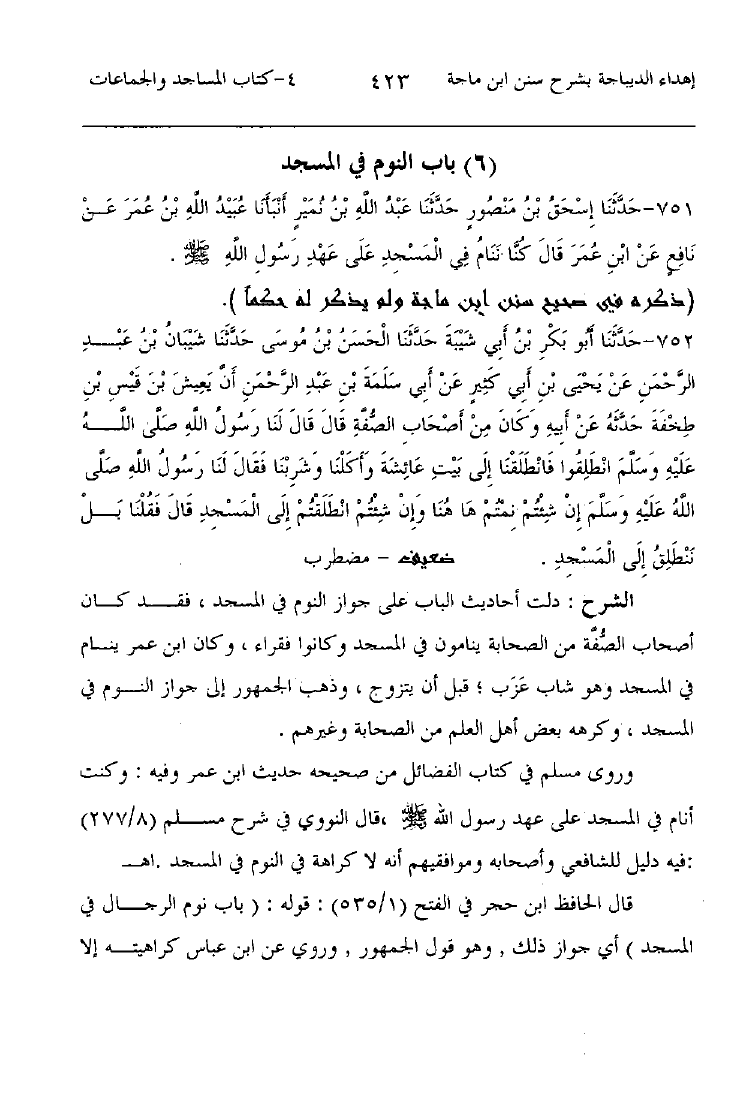 إهداء الديباجة بشرح سنن ابن ماجة ٤٢٣ ٤-كتاب المساجد والجماعات
(٦) باب النوم في المسجد
٧٥١-حَدَّثَنَا إِسْحَقُ بْنُ مَنْصُورٍ حَدَّثَنَا عَبْدُ اللَّهِ بْنُ نُمَيْرٍ أَنْبَأَنَا عُبَيْدُ اللَّهِ بْنُ عُمَرَ عَنْ
نَافِعٍ عَنْ ابْنِ عُمَرَ قَالَ كُنَّا نَنَامُ فِي الْمَسْجِدِ عَلَى عَهْدِ رَسُولِ اللَّهِ ﷺ .
(ذكره في صحيح سنن ابن ماجة ولم يذكر له حكماً ).
٧٥٢-حَدَّثَنَا أَبُو بَكْرِ بْنُ أَبِي شَيْبَةَ حَدَّثَنَا الْحَسَنُ بْنُ مُوسَى حَدَّثَنَا شَيْبَانُ بْنُ عَبْدِ
الرَّحْمَنِ عَنْ يَحْيَى بْنِ أَبِي كَثِيرٍ عَنْ أَبِي سَلَمَةَ بْنِ عَبْدِ الرَّحْمَنِ أَنَّ يَعِيشَ بْنَ قَيْسِ بْنِ
طِخْفَةَ حَدَّثَهُ عَنْ أَبِيهِ وَكَانَ مِنْ أَصْحَابِ الصُّفَّةِ قَالَ قَالَ لَنَا رَسُولُ اللَّهِ صَلَّى اللَّهُ
عَلَيْهِ وَسَلَّمَ انْطَلِقُوا فَانْطَلَقْنَا إِلَى بَيْتِ عَائِشَةَ وَأَكَلْنَا وَشَرِبْنَا فَقَالَ لَنَا رَسُولُ اللَّهِ صَلَّى
اللَّهُ عَلَيْهِ وَسَلَّمَ إِنْ شِئْتُمْ نِمْتُمْ هَا هُنَا وَإِنْ شِئْتُمْ انْطَلَقْتُمْ إِلَى الْمَسْجِدِ قَالَ فَقُلْنَا بَلْ
نَنْطَلِقُ إِلَى الْمَسْجِدِ . ضعيف – مضطرب
الشرح : دلت أحاديث الباب على جواز النوم في المسجد ، فقد كان
أصحاب الصُّفَّة من الصحابة ينامون في المسجد وكانوا فقراء ، وكان ابن عمر ينام
في المسجد وهو شاب عَزَب ؛ قبل أن يتزوج ، وذهب الجمهور إلى جواز النوم في
المسجد ، وكرهه بعض أهل العلم من الصحابة وغيرهم .
وروى مسلم في كتاب الفضائل من صحيحه حديث ابن عمر وفيه : وكنت
أنام في المسجد على عهد رسول الله ﷺ ،قال النووي في شرح مسلم (٢٧٧/٨)
:فيه دليل للشافعي وأصحابه وموافقيهم أنه لا كراهة في النوم في المسجد .اهـ
قال الحافظ ابن حجر في الفتح (٥٣٥/١) : قوله : ( باب نوم الرجال في
المسجد ) أي جواز ذلك , وهو قول الجمهور , وروي عن ابن عباس كراهيته إلا